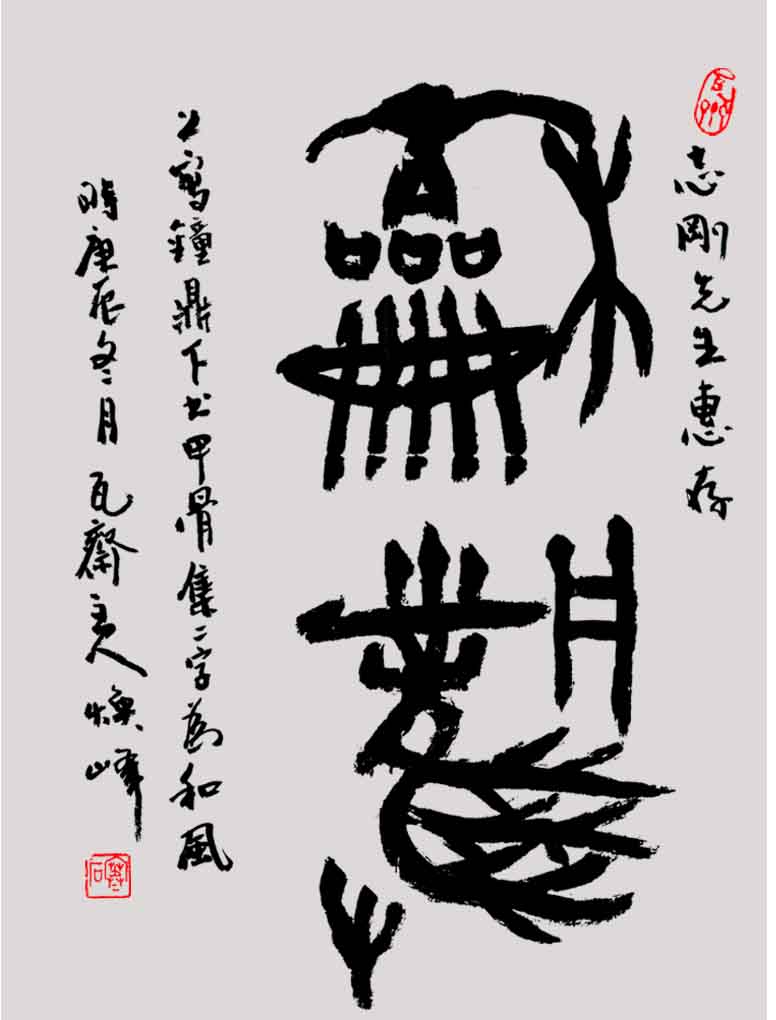 志剛先生惠存
龢
風
上寫鐘鼎下书甲骨集二字為和風
時庚辰冬月瓦齋主人煥峰